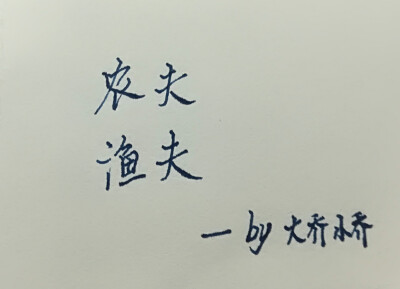 农夫
渔夫
—by 大乔小乔